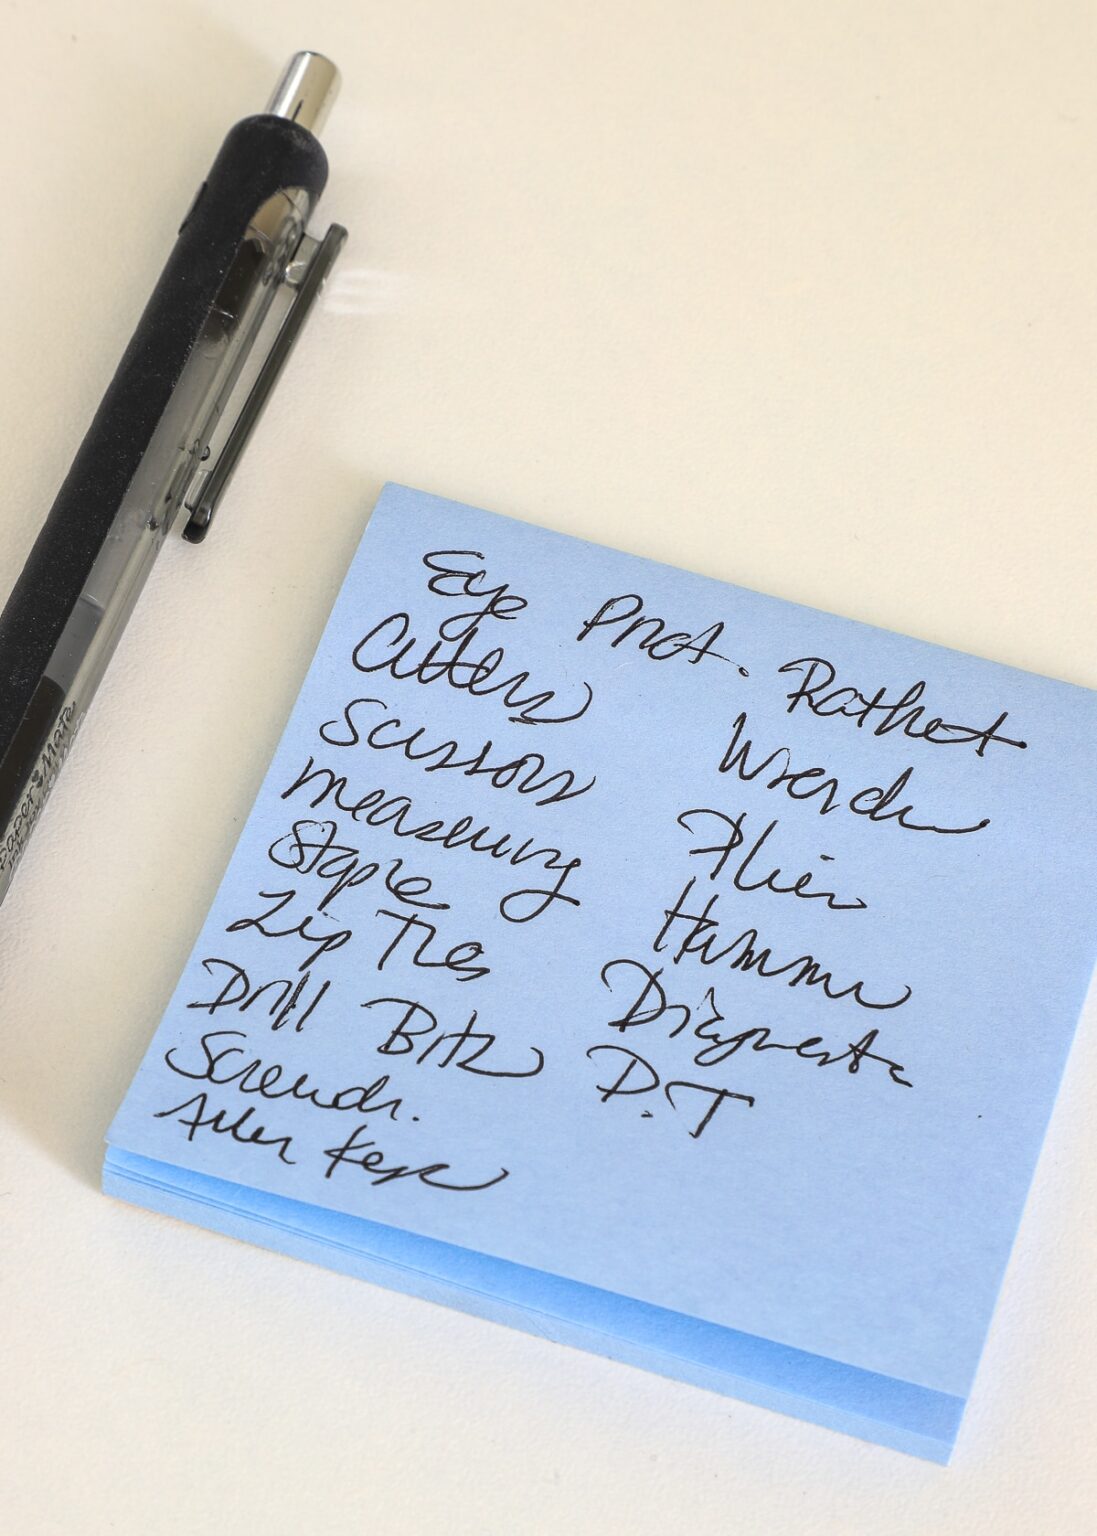 Eye Prot.
Cutters
Scissors
Measuring
Staple
Zip Ties
Drill Bits
Screwdr.
Allen Keys
Rathet
Wrench
Plier
Hammer
D.T
Paper Mate